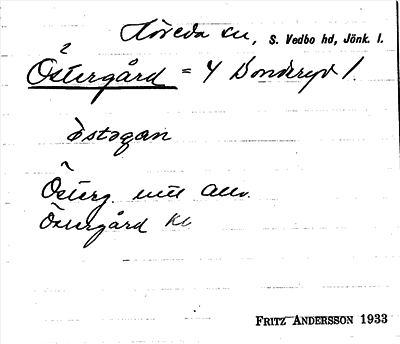 Höreda sn, S. Vedbo hd, Jönk. l.
2
Östergård = Y Bonderyd 1.
östəgan
Österg. mtl allm.
Östergård Kl
Fritz Andersson 1933